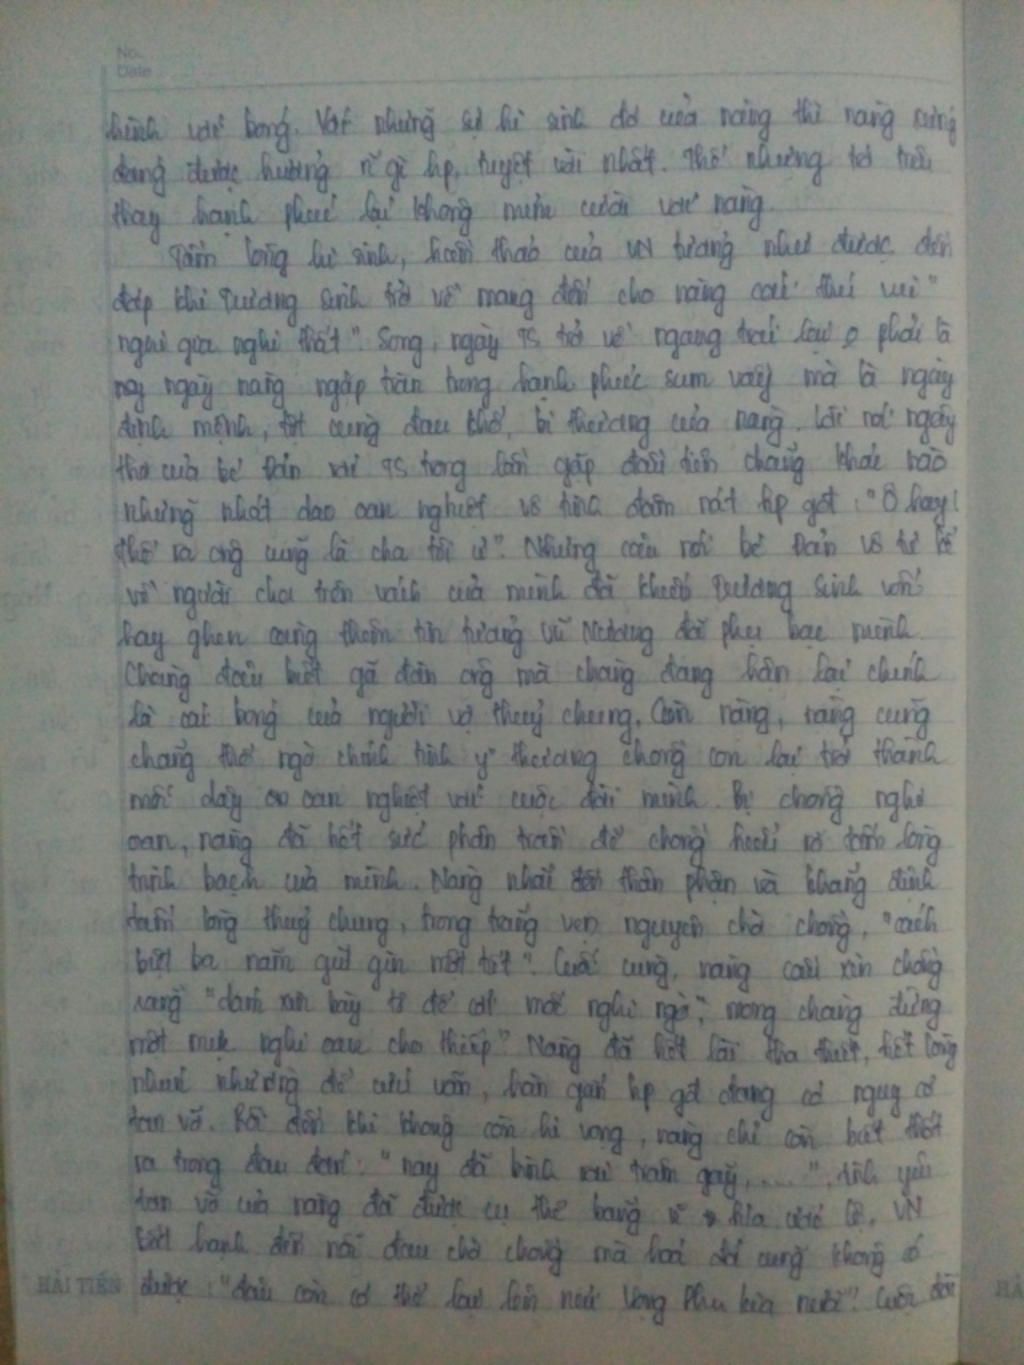 No.
Date
hình với bóng. Với những sự hi sinh đó của nàng thì nàng xứng
đáng được hưởng n~ gì hp, tuyệt vời nhất. Thế nhưng trớ trêu
thay hạnh phúc lại không mỉm cười với nàng.
Tấm lòng hi sinh, hiếu thảo của VN tưởng như được đền
đáp khi Trương Sinh trở về mang đến cho nàng cái thú vui "
nghi gia nghi thất". Song, ngày TS trở về ngang trái lại phải là
ngày nàng ngập tràn trong hạnh phúc sum vầy mà là ngày
định mệnh, tột cùng đau khổ, bi thương của nàng. Lời nói ngây
thơ của bé Đản với TS trong lần gặp đầu tiên chẳng khác nào
những nhát dao oan nghiệt vô tình đâm nát hp gđ: "Ô hay!
thế ra ông cũng là cha tôi ư". Những câu nói bé Đản vô tư kể
về người cha trên vách của mình đã khiến Trương Sinh vốn
hay ghen càng thêm tin tưởng Vũ Nương đã phụ bạc mình.
Chàng đâu biết gã đàn ông mà chàng đang hận lại chính
là cái bóng của người vợ thuỷ chung. Còn nàng, nàng cũng
chẳng thể ngờ chính tình ý thương chồng con lại trở thành
mối dây oan nghiệt với cuộc đời mình. Bị chồng nghi
oan, nàng đã hết sức phân trần để chồng hiểu rõ tấm lòng
trinh bạch của mình. Nàng nhắc đến thân phận và khẳng định
tấm lòng thuỷ chung, trong trắng vẹn nguyên chờ chồng, "cách
biệt ba năm giữ gìn một tiết". Cuối cùng, nàng cầu xin chồng
rằng "dám xin bày tỏ để cởi mối nghi ngờ, mong chàng đừng
một mực nghi oan cho thiếp" Nàng đã hết lời tha thiết, hết lòng
nhún nhường để cứu vãn, hàn gắn hp gđ đang có nguy cơ
tan vỡ. Rồi đến khi không còn hi vọng, nàng chỉ còn biết thốt
ra trong đau đớn: "nay đã bình rơi trâm gãy,......", tình yêu
tan vỡ của nàng đã được cụ thể bằng n~ h/a ước lệ, VN
bất hạnh đến nỗi đau chờ chồng mà hoá đá cũng không có
được: "đâu còn có thể lại lên núi Vọng Phu kia nữa". Cuộc đời
HẢI TIẾN